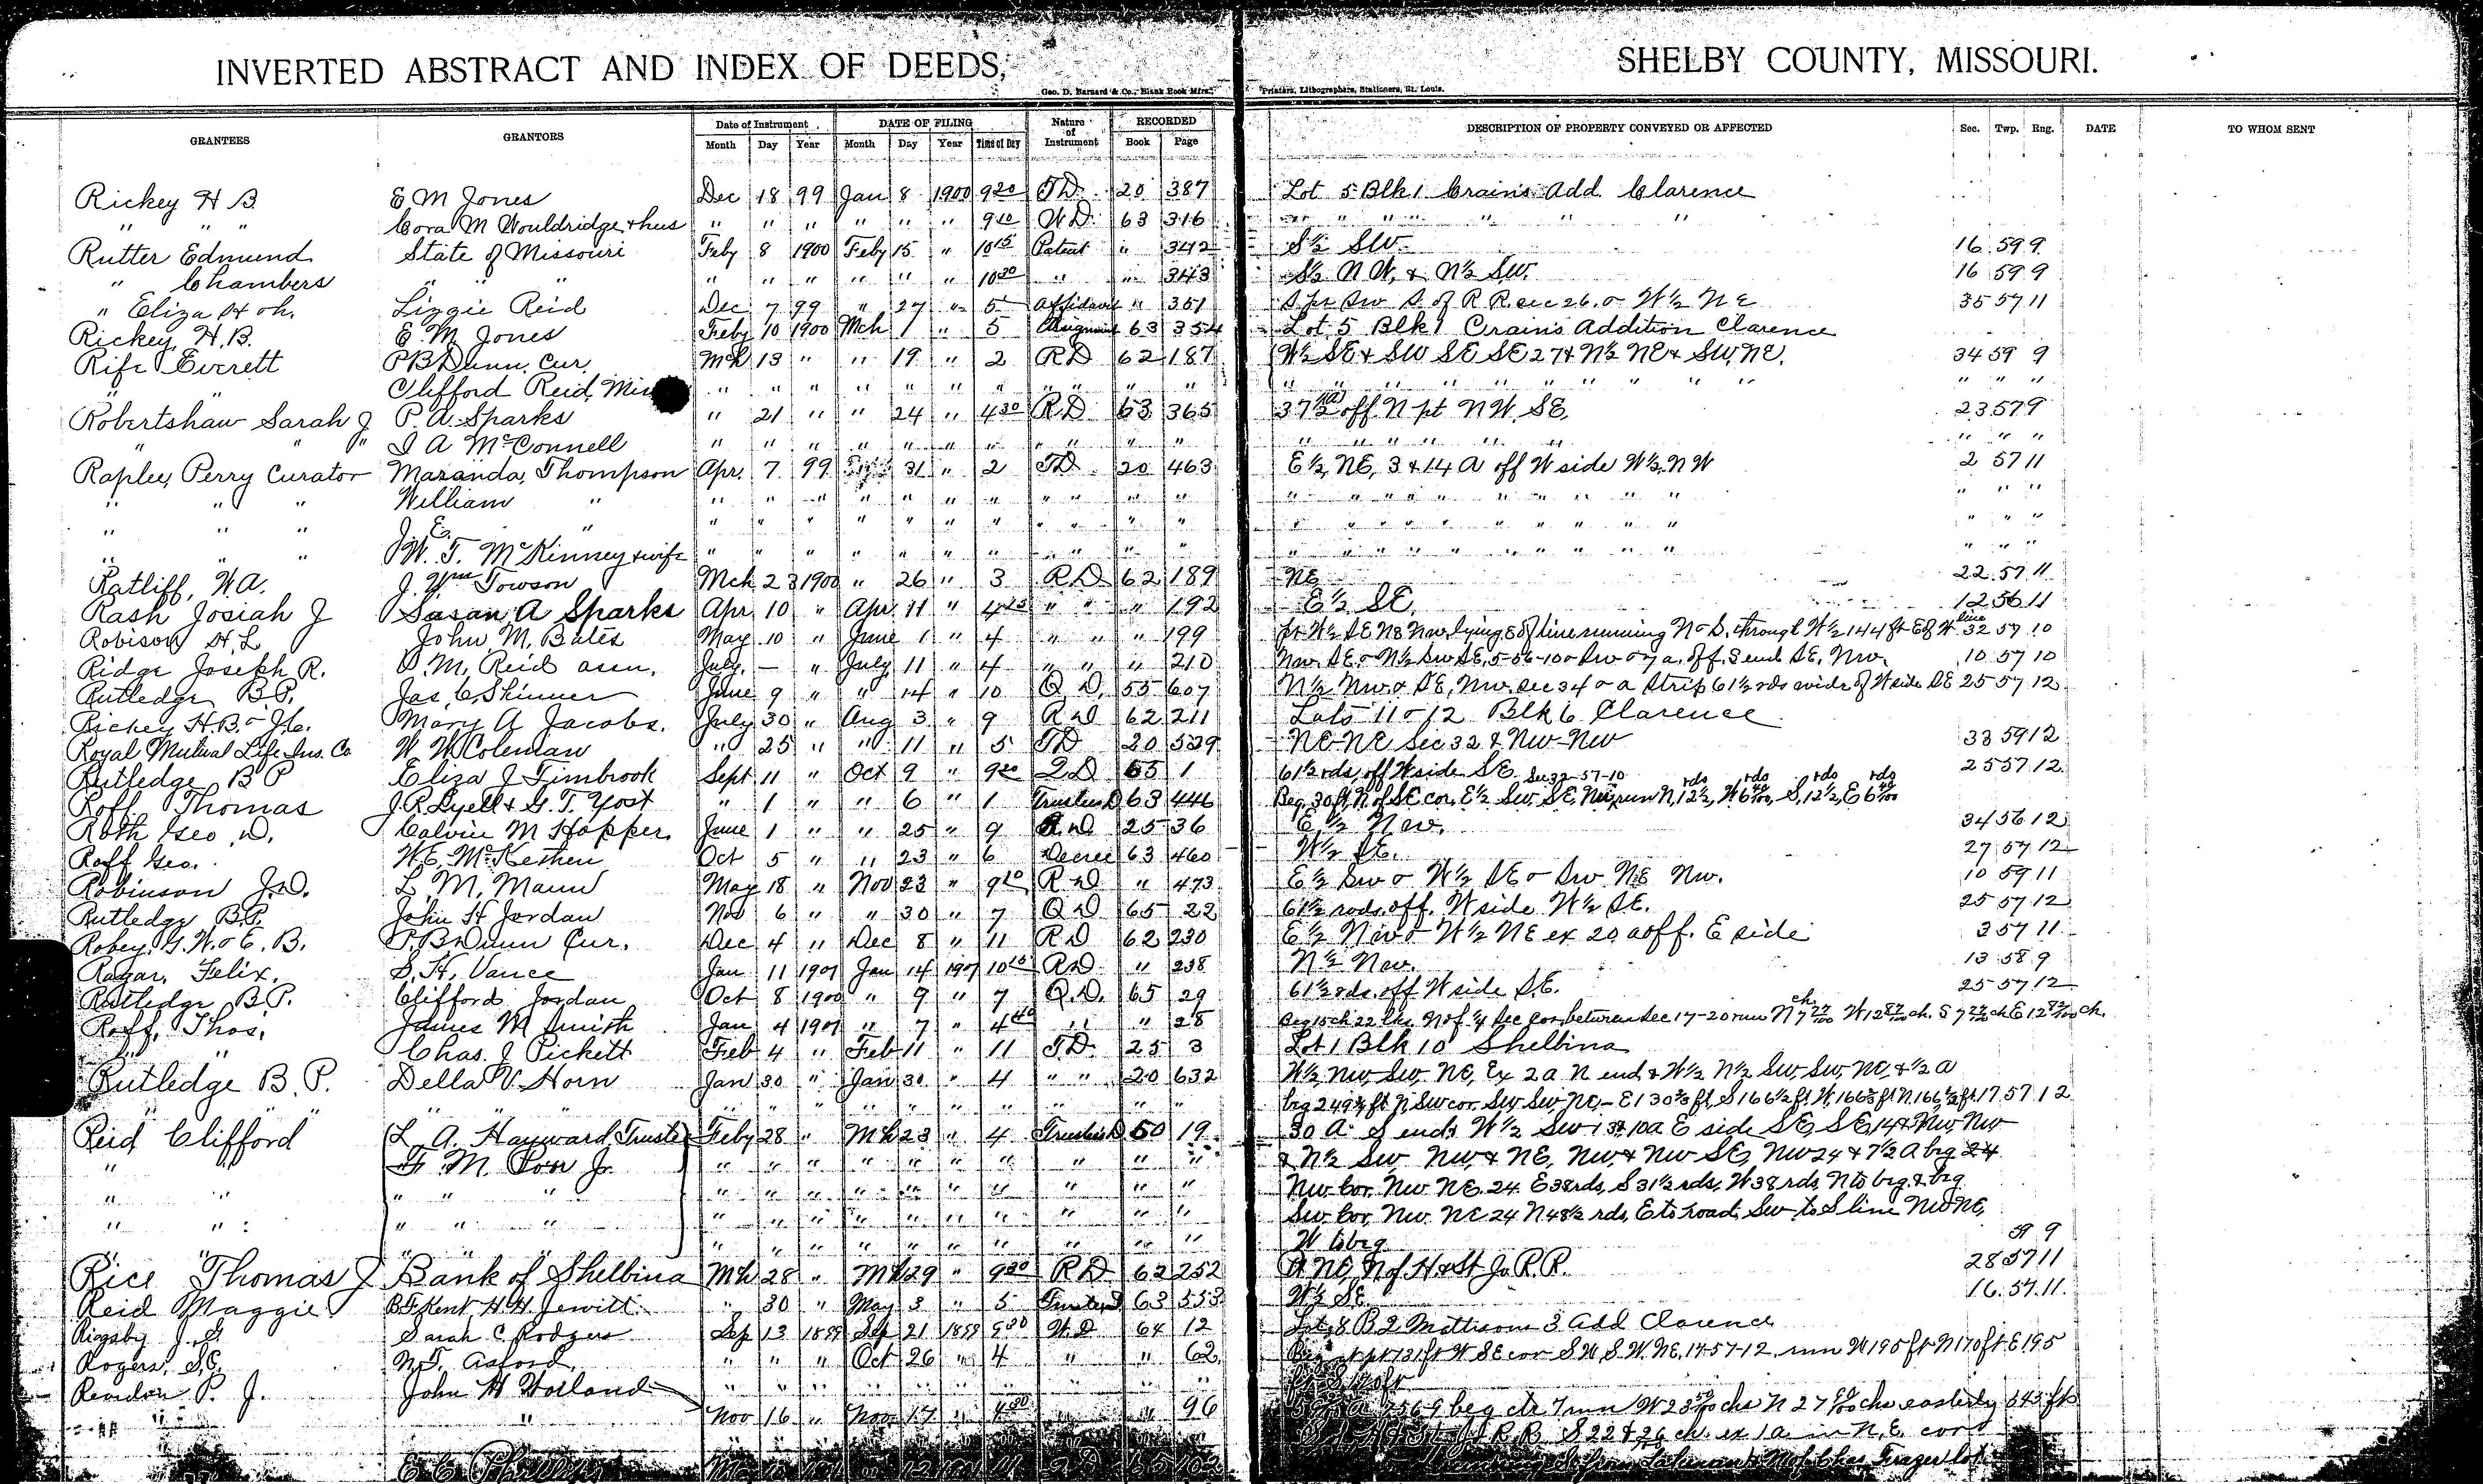 INVERTED ABSTRACT AND INDEX OF DEEDS, SHELBY COUNTY, MISSOURI.
Geo. D. Barnard & Co., Blank Book Mfrs., Printers, Lithographers, Stationers, St. Louis.
GRANTEES GRANTORS Date of Instrument DATE OF FILING Nature of Instrument RECORDED DESCRIPTION OF PROPERTY CONVEYED OR AFFECTED Sec. Twp. Rng. DATE TO WHOM SENT
Month Day Year Month Day Year Time of Day Book Page
Rickey H B E M Jones Dec 18 99 Jan 8 1900 9 20 T D 20 387 Lot 5 Blk 1 Crains Add. Clarence
" " " Cora M Wouldridge & hus " " " " " " 9 20 W D 63 316 " " " " " " "
Rutter Edmund State of Missouri Feby 8 1900 Feby 15 " 10 15 Patent " 342 S½ SW 16 59 9
" Chambers " " " " " " " " " 10 30 " " 343 S½ N W, & N½ SW. 16 59 9
" Eliza H oh. Lizzie Reid Dec 7 99 " 27 " 5 Affidavit " 351 S pt Sw S. of R R. sec 26. & W½ N E 35 57 11
Rickey, H. B. E. M. Jones Feby 10 1900 Mch 1 " 5 63 354 Lot 5 Blk 1 Crains Addition Clarence
Rife Everett P B Dunn, Cur. Mch 13 " " 19 " 2 R D 62 187 W½ SE & SW SE SE 27 & N½ NE & SW, NE. 34 59 9
" " Clifford Reid, " " " " " " " " " " " " " " " " " " " " " " "
Robertshaw Sarah J P. A. Sparks " 21 " " 24 " 4 30 R D 63 365 37½ (a) off N pt N W. SE, 23 57 9
" " " I A McConnell " " " " " " " " " " " " " " " " " " " " "
Raplee, Perry Curator Maranda, Thompson Apr. 7 99 31 " 2 T D 20 463 E½, NE, 3 & 14 A off W side W½, N W 2 57 11
" " " William " " " " " " " " " " " " " " " " " " " " " " " "
" " " J. E. " " " " " " " " " " " " " " " " " " " " " " " "
" " " W. T. McKinney & wife " " " " " " " " " " " " " " " " " " " " " " "
Ratliff, W A. J. Wm Towson Mch 23 1900 " 26 " 3 R D 62 189 NE 22 57 11
Rash Josiah J Susan A Sparks Apr 10 " Apr. 11 " 4 25 " " " 192 E½ SE. 12 56 11
Robison H. L John M. Bates May 10 " June 1 " 4 " " " 199 pt W½ S E NE Nw. lying E of line running N & S. through W½ 144 ft E of W line 32 57 10
Ridge Joseph R. D. M. Reid assn. July — " July 11 " 4 " " " 210 Nw. S E. & N½ Sw SE, 5-56-10 & Sw & 7 a. off. S end S E, Nw. 10 57 10
Rutledge B P. Jas. C Skinner June 9 " " 14 " 10 Q D. 55 607 N½ Nw & S E, Nw. Sec 34 & a strip 61½ rds wide of W side S E 25 57 12
Rickey H. B & J. C. Mary A Jacobs. July 30 " Aug 3 " 9 R D 62 211 Lots 11 & 12 Blk 6 Clarence
Royal Mutual Life Ins. Co W W Coleman " 25 " " 11 " 5 T D 20 539 N E-N E Sec 32 & Nw-Nw 33 59 12
Rutledge B P Eliza J Timbrook Sept 11 " Oct 9 " 9 20 Q D 65 1 61½ rds, off W side S E. 25 57 12.
Roff Thomas J. R. Lyell & G. T. Yost " 1 " " 6 " 1 Trustees D 63 446 Sec 32-57-10 Beg. 30 ft, N. of SE cor, E½ Sw, SE, run N, 12½ rds, W 6 rds, S, 12½ rds, E 6 rds
Roth Geo. D. Calvin M Hopper June 1 " " 25 " 9 R D 25 36 E, ½ Nw. 34 56 12
Roff Geo. W. E. McKethen Oct 5 " " 23 " 6 Decree 63 460 W½ SE. 27 57 12
Robinson J. D. L. M. Mann May 18 " Nov 23 " 9 10 R D " 473 E½ Sw & W½ S E & Sw NE Nw. 10 59 11
Rutledge B. P. John H Jordan Nov 6 " " 30 " 7 Q D 65 22 61½ rods off. W side W½ S E. 25 57 12
Robey, G. W. & E. B. P. B Dunn Cur. Dec 4 " Dec 8 " 11 R D 62 230 E½ Nw & W½ NE ex 20 a off. E side 3 57 11
Ragar, Felix, S. H. Vance Jan 11 1901 Jan 14 1901 10 10 R D " 238 N½ Nw. 13 58 9
Rutledge B P. Clifford Jordan Oct 8 1900 " 9 " 7 Q. D. 65 29 61½ rds. off W side S. E. 25 57 12
Roff, Thos, James M Smith Jan 4 1901 " 7 " 4 40 " " 28 Beg 15 ch 22 lks N of ¼ Sec cor. between Sec 17-20 run
" " Chas. J Pickett Feb 4 " Feb 11 " 11 T. D. 25 3 Lot 1 Blk 10 Shelbina
Rutledge B. P. Della V. Horn Jan 30 " Jan 30 " 4 " " 20 632 W½ Nw, Sw, NE, Ex 2 a N end & W½ N½ Sw, Sw, NE, & ½ a
" " " " " " " " " " " " " " " " beg 249½ ft N, Sw cor, Sw, Sw, NE, 17 57 12
Reid Clifford L. A. Hayward, Trustee Feby 28 " Mch 23 " 4 Trustees D 60 19 30 A S end W½ Sw 13 & 10a E side SE, SE, 14 & Nw Nw
" " F. M. Poor Jr. " " " " " " " " " " & N½ Sw Nw, & NE, Nw, & Nw SE, Nw 24 & 7½ A beg 24
" " " " " " " " " " " " " " " Nw Cor, Nw NE. 24. E 38 rds, S 31½ rds, W 38 rds, N to beg. & beg
" " " " " " " " " " " " " " " Sw Cor, Nw NE 24 N 48½ rds, E to road, Sw to S line Nw NE,
" " " " " " " " " " " " " " W to beg 59 9
Rice Thomas J Bank of Shelbina Mch 28 " Mch 29 " 9 30 R D 62 252 NE, N of H & St Jo. R. R. 28 57 11
Reid Maggie B F Kent H H Jewitt " 30 " May 3 " 5 Trustees D 63 553 W½ SE 16 57 11
Rigsby J. G Sarah C Rodgers Sep 13 1899 Sep 21 1899 W D 64 12 Lot 8 B 2 Mattisons 3 Add Clarence
Rogers, S. C. N. T. Asford, " " " Oct 26 " 4 " " 62 W SE cor S W, S. W. NE, 17-57-12, run W 195 ft N 170 ft E 195
P. J. John H Holland " " " " " " " " " "
" " " Nov 16 " Nov 17 " 4 30 " " 96 beg ctr 7 run W 23 chs N 27 chs easterly 643 fts
R R S 22 ch. ex 1 a. in N. E. cor